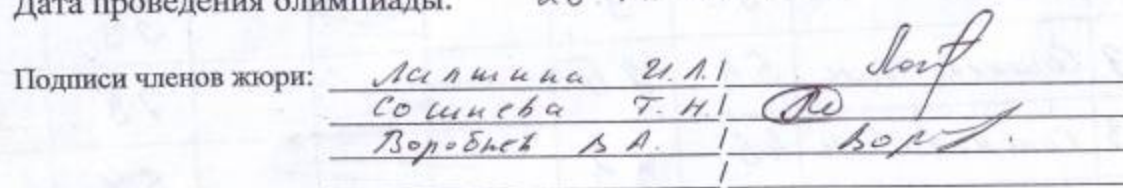 Дата проведения олимпиады:
Подписи членов жюри: Лапшина И.Л./
Сошнева Т.Н./
Воробьев В А. /
/